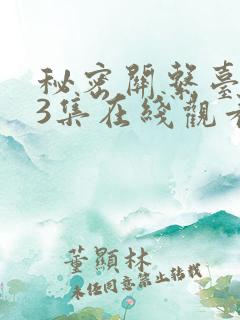 秘密關繫臺
3集在綫觀看
董顯林
未任同意禁止转载